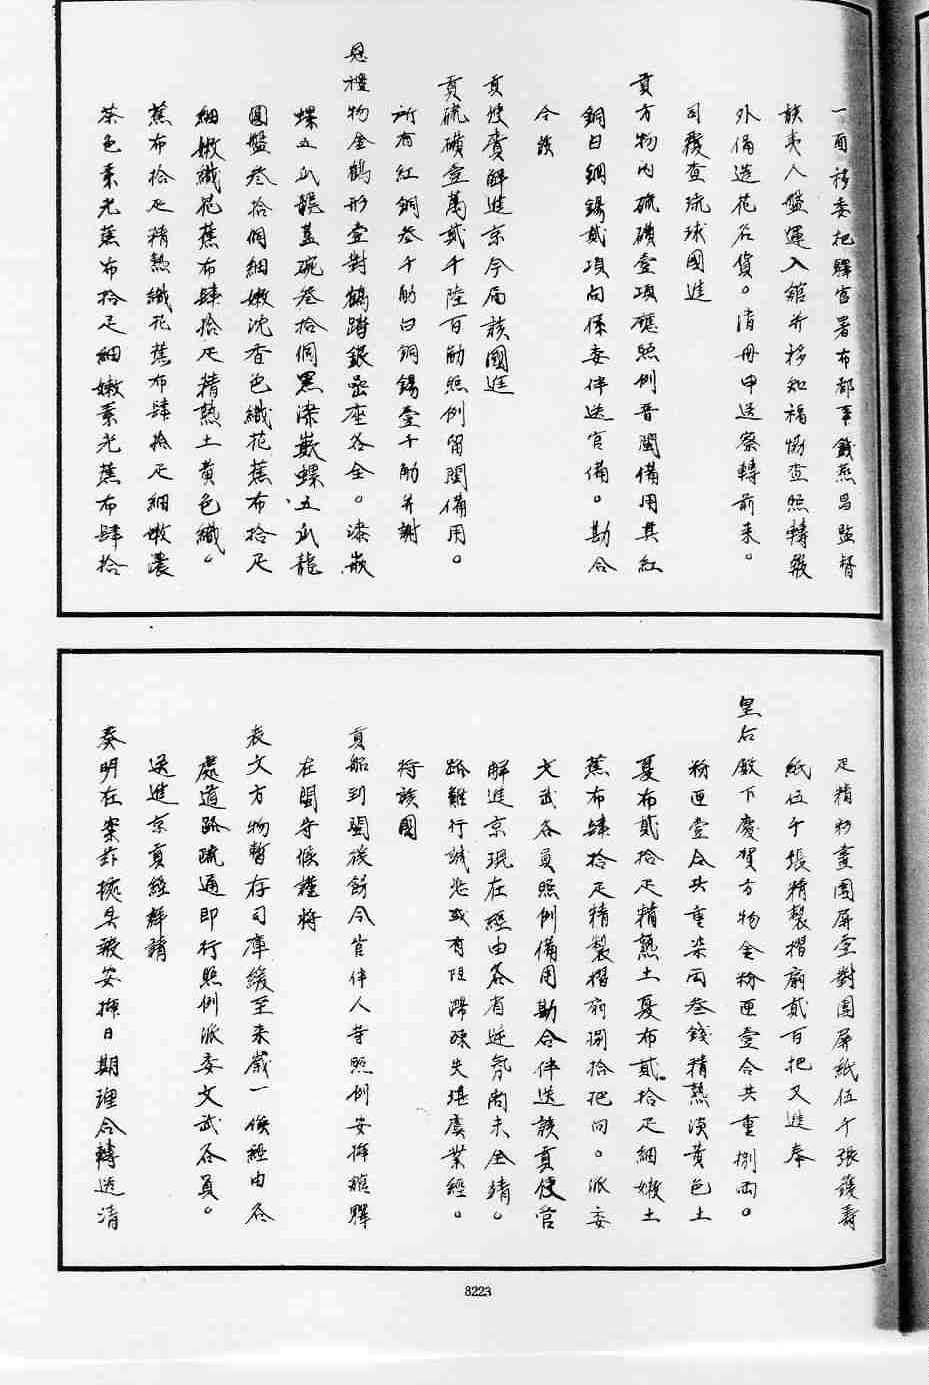 一面移委把驛官署布都事錢熙昌監督
該夷人盤運入館并移知福協查照轉飛
外備造花名貨。清冊申送察轉前来。
司覆查琉球國進
貢方物内硫磺壹項應照例晋閩備用其紅
銅白鋼錫貳項向係委伴送官備。勘合
令該
貢使賚解進京今届該國進
貢硫磺壹萬貳千陸百觔照例留閩備用。
所有紅銅叁千觔白鋼錫壹千觔并謝
恩禮物金鶴形壹對鶴蹲銀嵒座各全。漆嵌
螺五爪龍蓋碗叁拾個黑漆嵌螺五爪龍
圓盤叁拾個細嫩沈香色織花蕉布拾疋
細嫩織花蕉布肆拾疋精熟土黄色織。
蕉布拾疋精熟織花蕉布肆拾疋細嫩濃
茶色素光蕉布拾疋細嫩素光蕉布肆拾
疋精彩畫圍屏壹對圍屏紙伍千張護壽
紙伍千張精製摺扇貳百把又進奉
皇后殿下慶賀方物金粉匣壹合共重捌兩。
粉匣壹合共重柒兩叁錢精熟淡黄色土
夏布貳拾疋精熟土夏布貳拾疋細嫩土
蕉布肆拾疋精製摺扇捌拾把向。派委
文武各員照例備用勘合伴送該貢使官
解進京現在經由各省逆氛尚未全靖。
路難行誠恐或有阻滯疎失堪虞業經。
將該國
貢船到閩後飭令官伴人等照例安挿館驛
在閩守候謹將
表文方物暫存司庫緩至来歲一俟經由各
處道路疏通即行照例派委文武各員。
送進京貢經詳請
奏明在案茲據具報安挿日期理合轉送清
8223